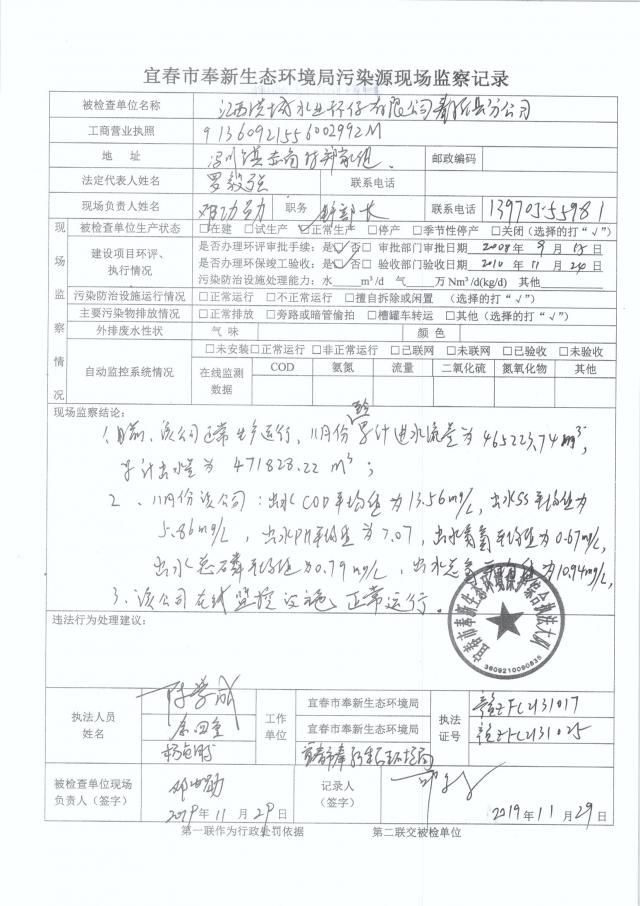 宜春市奉新生态环境局污染源现场监察记录
被检查单位名称 江西洪城水业环保有限公司奉新县分公司
工商营业执照 91360921556002992M
地 址 冯川镇 邮政编码
法定代表人姓名 罗毅强 联系电话
现场负责人姓名 邓功勋 职务 部长 联系电话 13970555981
现场监察情况
被检查单位生产状态 □在建 □试生产 ☑正常生产 □停产 □季节性停产 □关闭（选择的打“√”）
建设项目环评、执行情况
是否办理环评审批手续：是☑ 否□ 审批部门审批日期 2008 年 9 月 12 日
是否办理环保竣工验收：是☑ 否□ 验收部门验收日期 2010 年 11 月 20 日
污染防治设施处理能力：水 m³/d 气 万Nm³/d(kg/d) 其他
污染防治设施运行情况 □正常运行 □不正常运行 □擅自拆除或闲置 （选择的打“√”）
主要污染物排放情况 □正常排放 □旁路或暗管偷排 □槽罐车转运 □其他（选择的打“√”）
外排废水性状 气 味 颜 色
自动监控系统情况 □未安装□正常运行 □非正常运行 □已联网 □未联网 □已验收 □未验收
在线监测数据 COD 氨氮 流量 二氧化硫 氮氧化物 其他
现场监察结论：
1、目前，该公司正常生产运行，11月份累计进水流量为465223.74m³，
累计出水量为 471828.22 m³；
2、11月份该公司：出水COD平均值为13.56mg/L，出水SS平均值为
5.86mg/L，出水PH平均值为7.07，出水氨氮平均值为0.67mg/L，
出水总磷平均值为0.79mg/L，出水总氮平均值为10.94mg/L，
3、该公司在线监控设施正常运行。
宜春市奉新生态环境保护综合执法大队
3609210090835
违法行为处理建议：
执法人员姓名 工作单位 宜春市奉新生态环境局 执法证号 赣ZFC2131017
宜春市奉新生态环境局 赣ZFC2131025
宜春市奉新生态环境局
被检查单位现场负责人（签字） 邓功勋 记录人（签字）
2019年11月29日 2019年11月29日
第一联作为行政处罚依据 第二联交被检单位